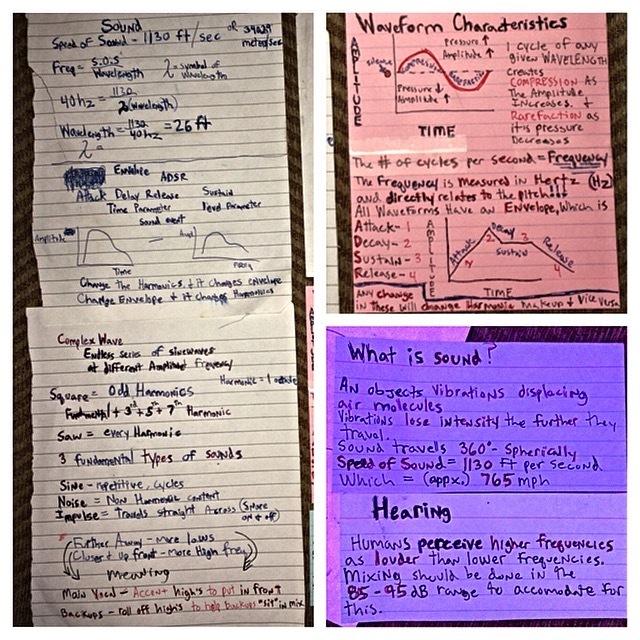 Sound
Speed of Sound - 1130 ft/sec or
meters/sec
Freq = S.O.S
Wavelength
λ = symbol of
wavelength
40hz = 1130
λ (wavelength)
Wavelength = 1130
40hz = 26 ft
λ =
Envelope ADSR
Attack Delay Release Sustain
Time Parameter level Parameter
sound event
Amplitude
Time
Ampl.
Freq
Change the Harmonics & it changes envelope
Change Envelope & it changes Harmonics
Complex Wave
Endless series of sinewaves
at different Amplitud frequency
Harmonic = 1 octave
Square = Odd Harmonics
Fundmental + 3rd + 5th + 7th Harmonic
Saw = every Harmonic
3 fundamental types of sounds
Sine - repetitive, cycles
Noise = Non Harmonic content
Impulse = Travels straight Across (Snare
on & off)
Further Away - more lows
Closer & Up front - More High freq
Meaning
Main Vocal - Accent high's to put in front
Backups - roll off high's to help backups "sit" in mix
Waveform Characteristics
AMPLITUDE
silence
Pressure ↑
Amplitude ↑
Compression
Rarefaction
Pressure ↓
Amplitude ↑
TIME
1 cycle of any
given WAVELENGTH
creates
COMPRESSION As
The Amplitude
Increases. &
Rarefaction as
it is pressure
Decreases
The # of cycles per second = Frequency
The Frequency is measured in Hertz (Hz)
and directly relates to the pitch!!!
All Waveforms Have an Envelope, Which is
Attack - 1
Decay - 2
Sustain - 3
Release - 4
AMPLITUDE
Attack
1
Decay
2
Sustain
3
Release
4
TIME
ANY change
in these will change Harmonic Makeup & Vice Versa
What is sound?
AN objects vibrations displacing
air molecules
Vibrations lose intensity the further they
travel.
Sound travells 360° - Spherically
Speed of Sound = 1130 Ft per second
Which = (appx.) 765 mph
Hearing
Humans perceive higher frequencies
as louder than lower frequencies.
Mixing should be done in the
85 - 95 dB range to accomodate for
this.